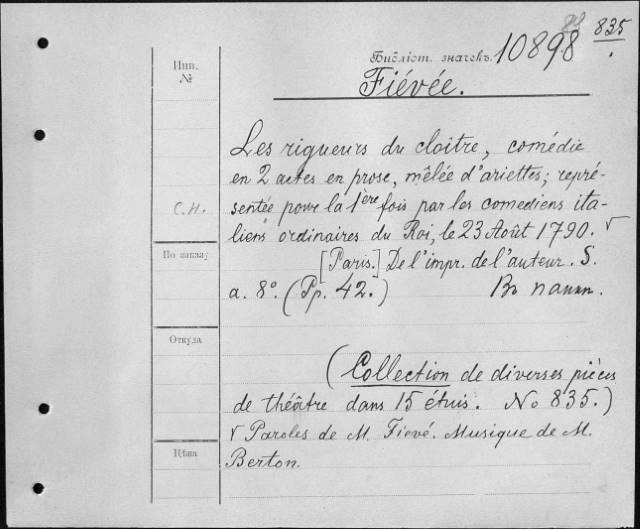 835
Инв.
№
Библіот. значекъ. 10898
Fiévée.
Les rigueurs du cloitre, comédie
en 2 actes en prose, mêlée d'ariettes; repré-
С.Н. sentée pour la 1ère fois par les comediens ita-
liens ordinaires du Roi, le 23 Août 1790. √
По заказу
[Paris.] De l'impr. de l'auteur. S.
a. 8°. (Pp. 42.) Въ папк.
Откуда
(Collection de diverses pièces
de théâtre dans 15 étuis. No 835.)
√ Paroles de M. Fievé. Musique de M.
Цѣна
Berton.